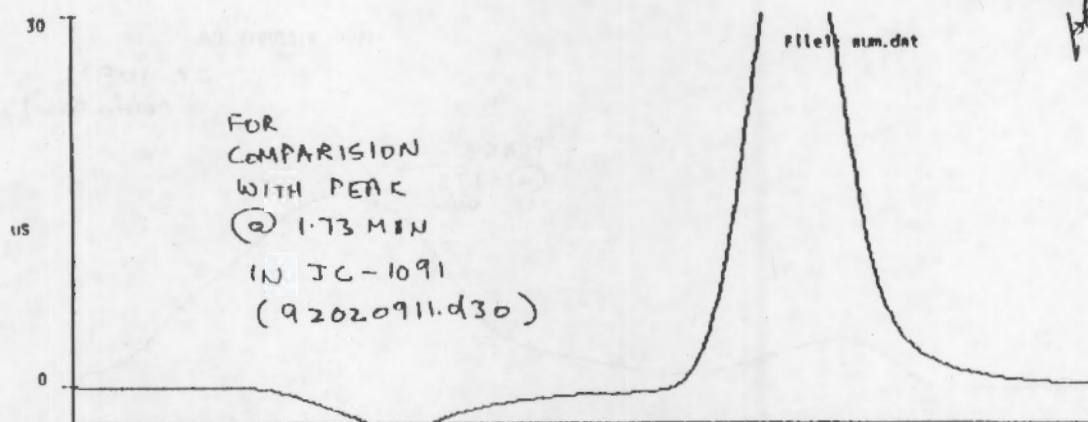 30
File1: num.dat
FOR
COMPARISION
WITH PEAK
@ 1.73 MIN
uS
IN JC-1091
(92020911.d30)
0